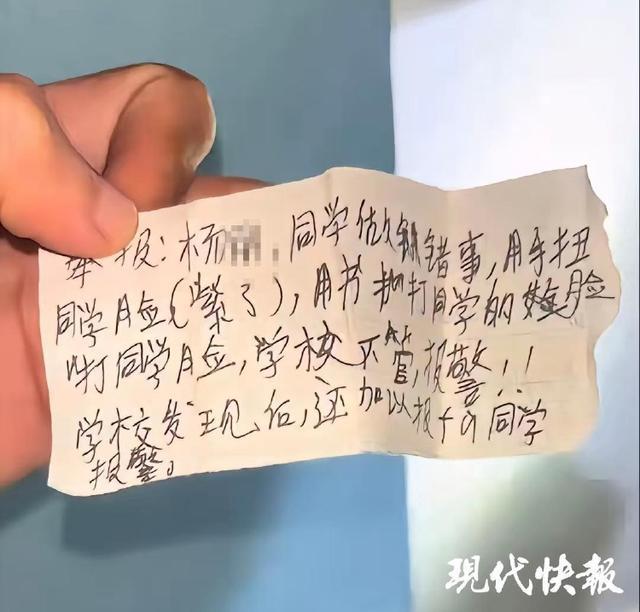 举报:杨 同学做错事,用手扭
同学脸(紫了),用书抽打同学的脸
叫打同学脸,学校不管,报警!!
学校发现后,还加以报 同学
报警。
现代快報